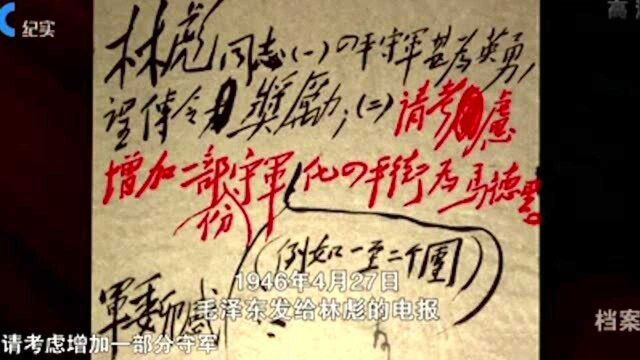 纪实
高清
林彪同志(一)四平守軍甚为英勇,
望傳令獎勵;(二)请考慮
增加一部份守軍
(例如一至二个團)
化四平街为馬德里。
軍委卯感
1946年4月27日
毛泽东发给林彪的电报
请考虑增加一部分守军
档案